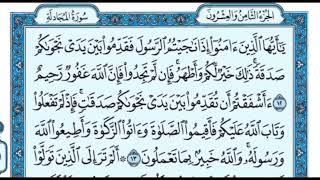 الجزء الثامن والعشرون سورة المجادلة
يَٰٓأَيُّهَا ٱلَّذِينَ ءَامَنُوٓاْ إِذَا نَٰجَيۡتُمُ ٱلرَّسُولَ فَقَدِّمُواْ بَيۡنَ يَدَيۡ نَجۡوَىٰكُمۡ
صَدَقَةٗۚ ذَٰلِكَ خَيۡرٞ لَّكُمۡ وَأَطۡهَرُۚ فَإِن لَّمۡ تَجِدُواْ فَإِنَّ ٱللَّهَ غَفُورٞ رَّحِيمٌ
١٢ ءَأَشۡفَقۡتُمۡ أَن تُقَدِّمُواْ بَيۡنَ يَدَيۡ نَجۡوَىٰكُمۡ صَدَقَٰتٖۚ فَإِذۡ لَمۡ تَفۡعَلُواْ
وَتَابَ ٱللَّهُ عَلَيۡكُمۡ فَأَقِيمُواْ ٱلصَّلَوٰةَ وَءَاتُواْ ٱلزَّكَوٰةَ وَأَطِيعُواْ ٱللَّهَ
وَرَسُولَهُۥۚ وَٱللَّهُ خَبِيرُۢ بِمَا تَعۡمَلُونَ ١٣ أَلَمۡ تَرَ إِلَى ٱلَّذِينَ تَوَلَّوۡاْ